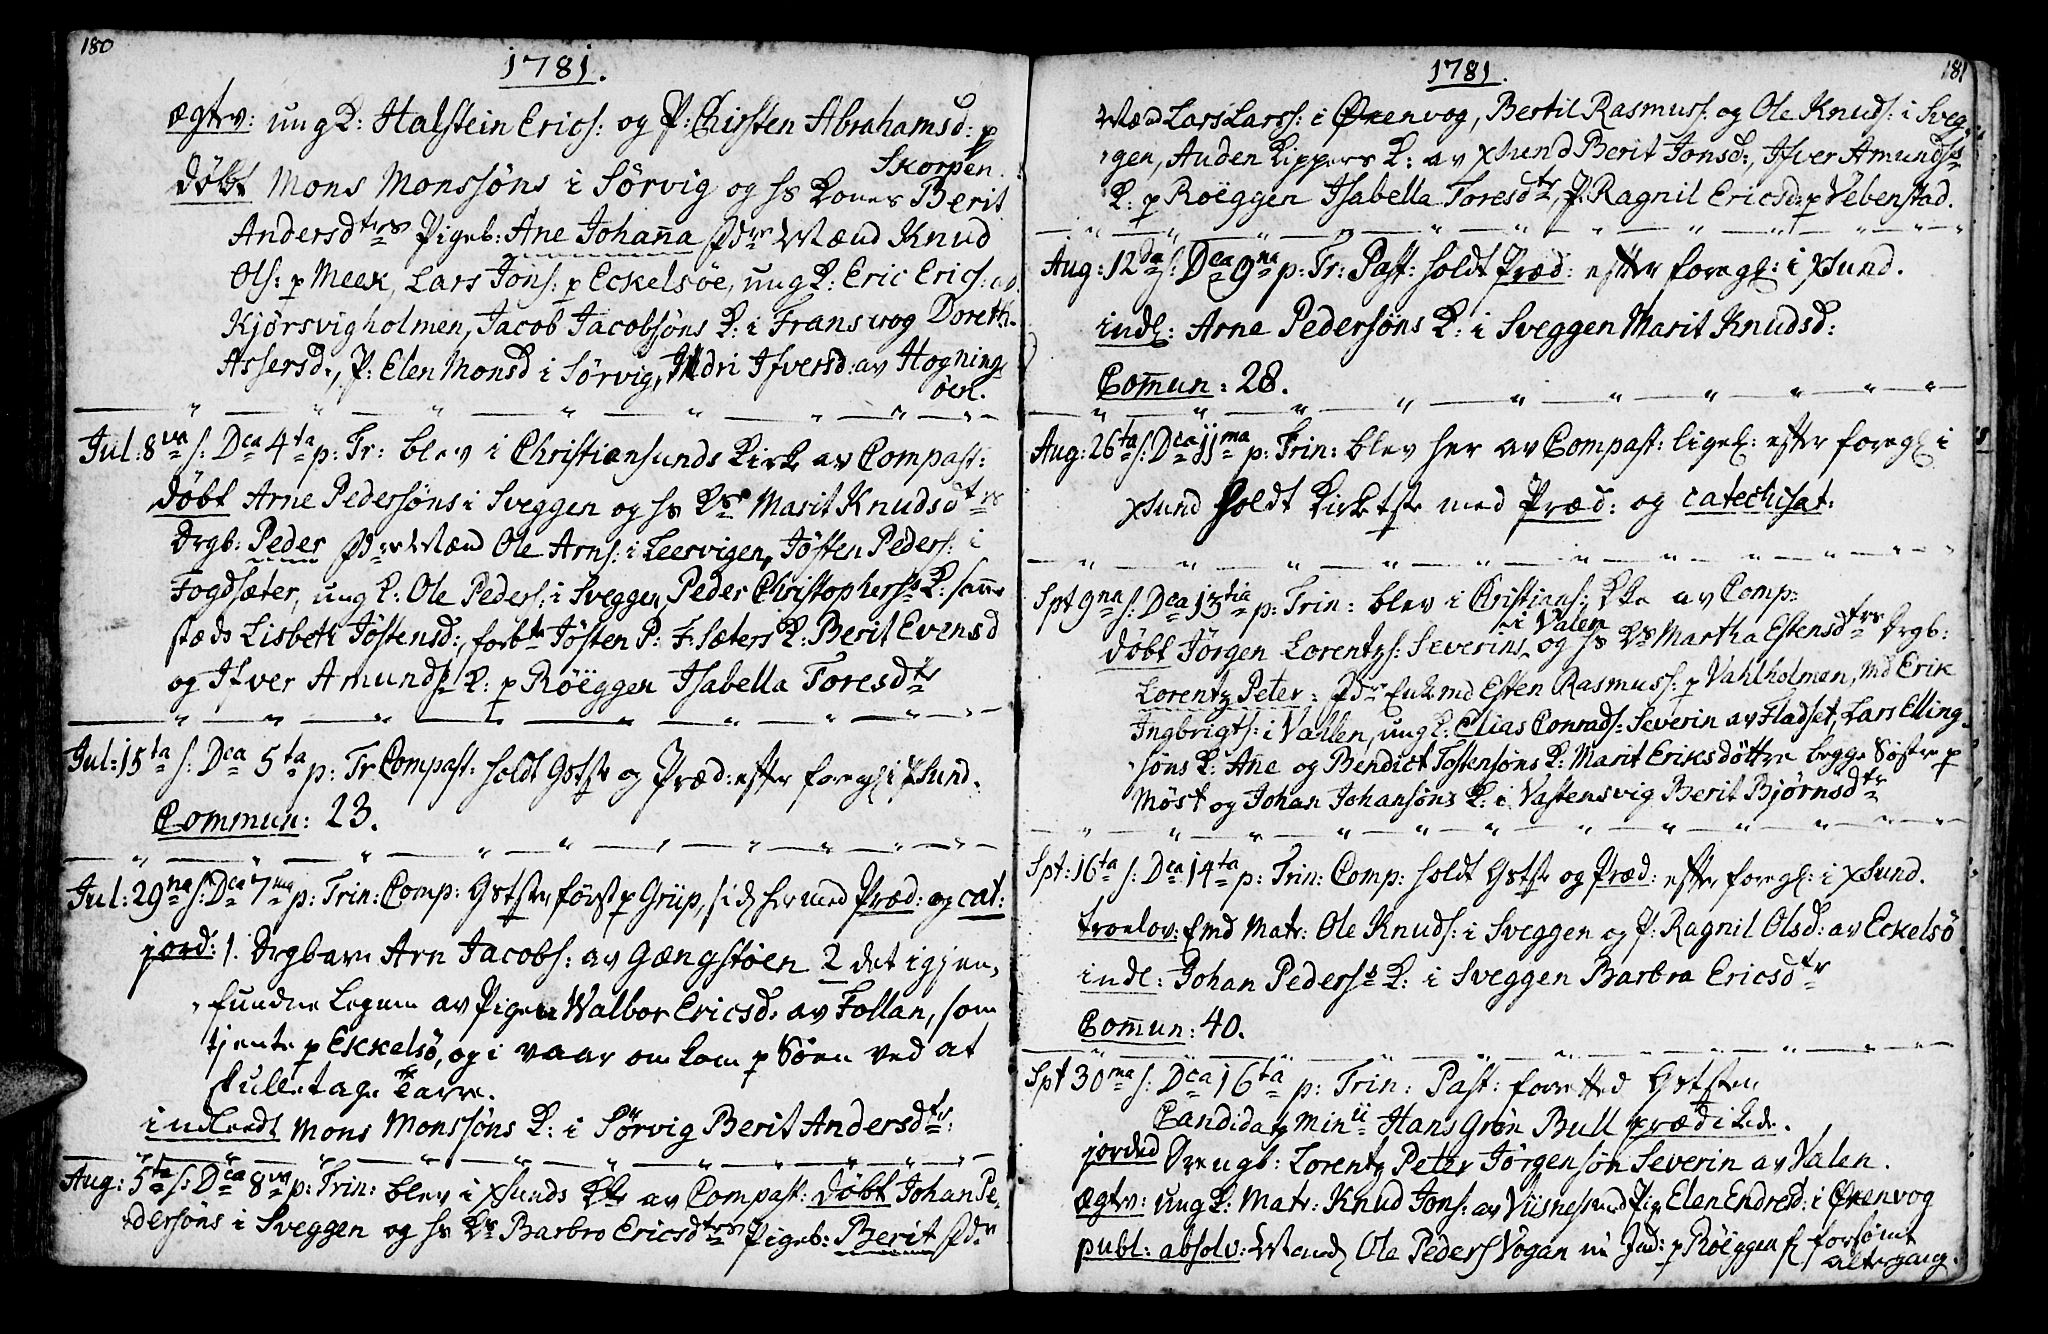 180
1781.
ægtv: ung K: Halstein Erics: og P: Chirsten Abrahamsd: p
Skorpen.
døbt Mons Monssøns i Sørvig og hs Kones Berit
Andersdtrs Pigeb: Ane Johanna Fdre Mænd Knud
Ols: p Meek, Lars Jons: p Eckelsøe, ung K: Eric Erics: av
Kjørsvigholmen, Jacob Jacobsøns K: i Franswog Doreth.
Assersd:, P: Elen Monsd i Sørvig, Ildri Ifversd: av Hogning
øen.
Jul: 8va s: Dca 4ta p: Tr: blev i Christiansunds Kirke av Compast:
døbt Arne Pedersøns i Sveggen og hs Ks Marit Knudsdtrs
Drgb: Peder Fdre Mænd Ole Arns: i Leervigen, Jøsten Peders: i
Fogdsæter, ung K: Ole Peders: i Sveggen, Peder Christophers: K: samme
stæds Lisbeth Jøstensd:, forbte Jøsten P: F.sæters K: Berit Evensd
og Ifver Amunds K: p Røeggen Isabella Toresdtr
Jul: 15ta s: Dca 5ta p: Tr Compast: holdt Gstste og Præd: efter foregl: i Xsund.
Commun: 23.
Jul: 29na s: Dca 7ma p: Trin: Comp: Gstste først p Grip, sid her med Præd: og cat:
jord: 1. Drgbarn Arn Jacobs: av Gængstøen 2 det igjen,
fundne Legem av Pigen Walbor Ericsd: av Follan, som
tjente p Ekkelsø, og i vaar om kom p Søen ved at
fulletage Tarre.
indleedt Mons Monssøns K: i Sørvig Berit Andersdtr:
Aug: 5ta s: Dca 8va p: Trin: blev i Xsunds Kke av Compast: døbt Johan Pe,
dersøns i Sveggen og hs Ks Barbro Ericsdtrs Pigeb: Berit Fdre
181
1781.
Mænd Lars Larss: i Ørenvog, Bertil Rasmuss: og Ole Knuds: i Sveg,
gen, Auden Kippers K: av Xsund Berit Jonsd:, Ifver Amunds
K: p Røeggen Isabella Toresdtr, P: Ragnil Ericsd: p Vebenstad.
Aug: 12da s: Dca 9na p: Tr: Past: holdt Præd: efter foregl: i Xsund.
indl: Arne Pedersøns K: i Sveggen Marit Knudsd:
Commun: 28.
Aug: 26ta s: Dca 11ma p: Trin: blev her av Compast: ligel: efter foregl i
Xsund holdt Kirketste med Præd: og catechisat:
Spt 9na s: Dca 13tia p: Trin: blev i Christians: Kke av Comp:
i Valen
døbt Jørgen Lorentzs: Severins og hs Ks Martha Estensdtrs Drgb:
Lorentz Peter: Fdre Enkemd Esten Rasmuss: p Vahlholmen, md Erik
Ingbrigts: i Vallen, ung K: Elias Conrads: Severin av Fladset, Lars Elling,
søns K: Ane og Bendict Tostensøns K: Marit Eriksdøttre begge Søstre p
Møst og Johan Johansøns K: i Vastensvig Berit Bjørnsdtr
Spt: 16ta s: Dca 14ta p: Trin: Comp: holdt Gstste og Præd: efter foregl: i Xsund.
troelov: Emd Matr: Ole Knuds: i Sveggen og P: Ragnil Olsd: av Eckelsø
indl: Johan Peders K: i Sveggen Barbra Ericsdtr
Comun: 40.
Spt 30ma s: Dca 16ta p: Trin: Past: forretted Gststen,
Candidatg Minii Hans Grøn Bull prædikede.
jorded Drengb: Lorentz Peter Jørgensøn Severin av Valen.
ægtv: ung K: Matr: Knud Jons: av Viisnes med Pig Elen Endresd: i Ørenvog
publ: absolv: Mand Ole Peders Vogan nu Ind: p Røeggen fl forsømt
altergang.